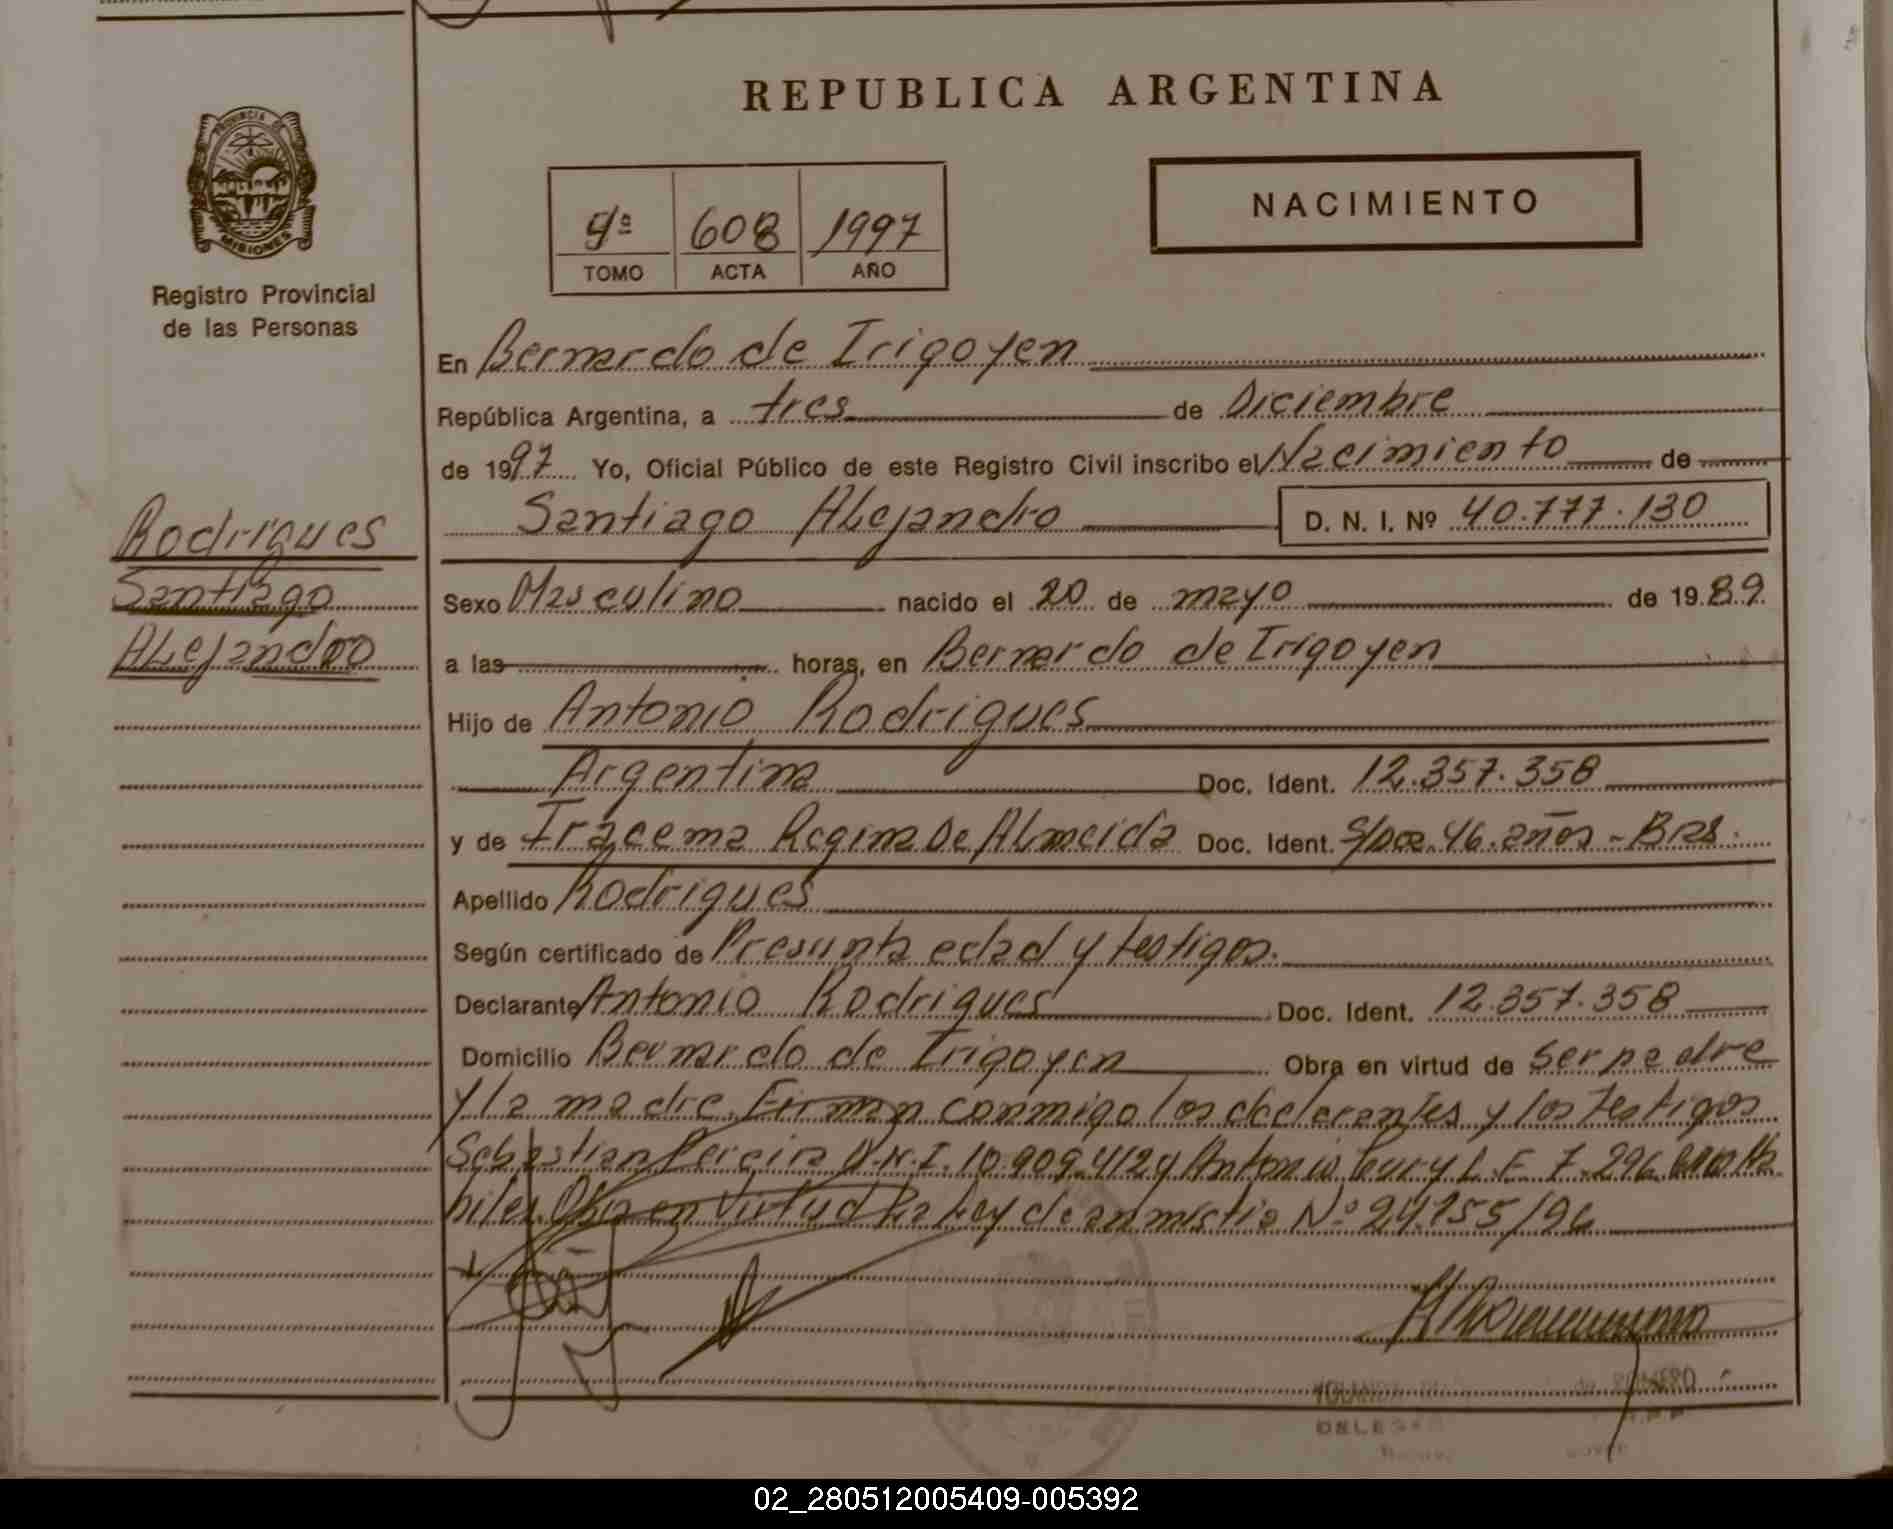 REPUBLICA ARGENTINA
PROVINCIA DE
MISIONES
Registro Provincial
de las Personas
608 1997
TOMO ACTA AÑO
NACIMIENTO
En Bernardo de Irigoyen
República Argentina, a tres de Diciembre
de 1997 Yo, Oficial Público de este Registro Civil inscribo el Nacimiento de
Santiago Alejandro D. N. I. Nº 40.777.130
Rodrigues
Santiago
Alejandro
Sexo Masculino nacido el 20 de mayo de 1989
a las horas, en Bernardo de Irigoyen
Hijo de Antonio Rodrigues
Argentina Doc. Ident. 12.357.358
y de Iracema Regina De Almeida Doc. Ident. S/Doc. 46. años - Bras.
Apellido Rodrigues
Según certificado de Presunta edad y testigos.
Declarante Antonio Rodrigues Doc. Ident. 12.357.358
Domicilio Bernardo de Irigoyen Obra en virtud de ser padre
y la madre. Firman conmigo los declarantes y los testigos
Sebastian Pereira D.N.I. 10.909.412 y Antonio L.E. 7.296.
biles. Obra en virtud Ley de anmistia Nº 24.755/96
YOLANDA de ROMERO
DELEGA
02_280512005409-005392